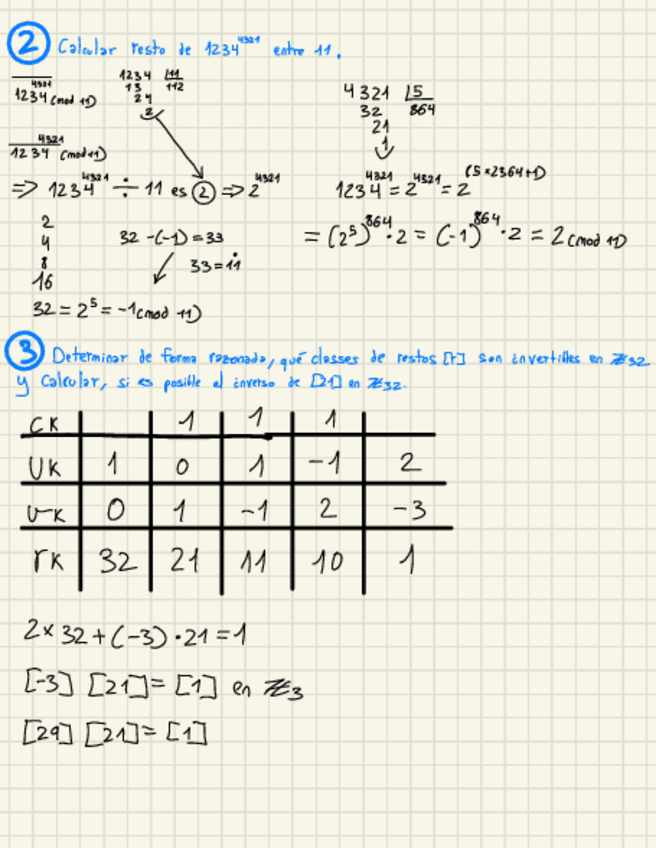 ② Calcular resto de 1234^4321 entre 11.
1234^4321 (mod 11)
1234 |11
13 112
24
2
1234^4321 (mod 11)
=> 1234^4321 ÷ 11 es ② => 2^4321
2
4
8
16
32 -(-1) = 33
33 = 11
32 = 2^5 = -1 (mod 11)
4321 |5
32 864
21
1
1234^4321 = 2^4321 = 2^(5×2364+1)
= (2^5)^864 · 2 = (-1)^864 · 2 = 2 (mod 11)
③ Determinar de forma razonada, qué classes de restos [r] son invertilles en Z32
y Calcular, si es posible el inverso de [21] en Z32.
CK 1 1 1
UK 1 0 1 -1 2
vK 0 1 -1 2 -3
rK 32 21 11 10 1
2×32+(-3)·21=1
[-3] [21]=[1] en Z3
[29] [21]=[1]